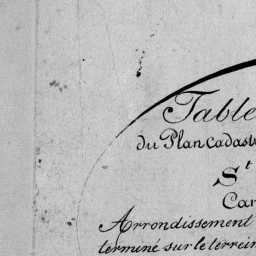 Table
du Plan cadast
St
Ca
Arrondissement
terminé sur le terrein